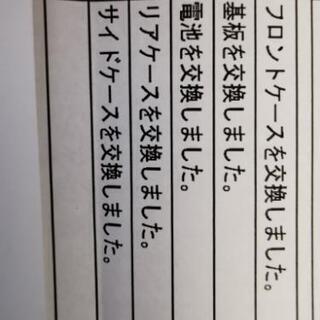 フロントケースを交換しました。
基板を交換しました。
電池を交換しました。
リアケースを交換しました。
サイドケースを交換しました。